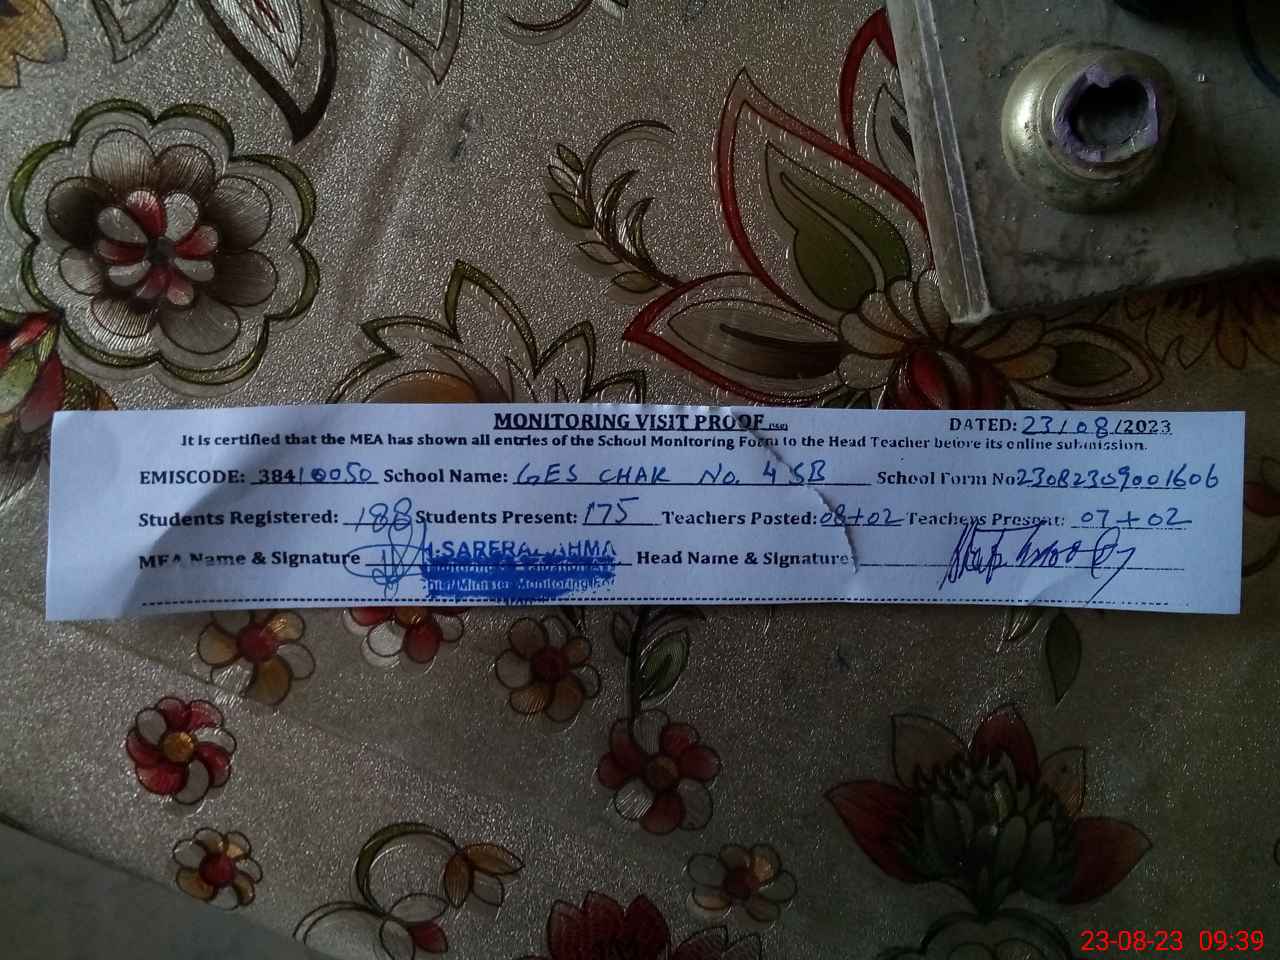 MONITORING VISIT PROOF DATED: 23/08/2023
It is certified that the MEA has shown all entries of the School Monitoring Form to the Head Teacher before its online submission.
EMISCODE: 38410050 School Name: GES CHAK No. 4 SB School Form No 23082309001606
Students Registered: 188 Students Present: 175 Teachers Posted: 08+02 Teachers Present: 07+02
MEA Name & Signature Head Name & Signature
Chief Minister Monitoring
23-08-23 09:39